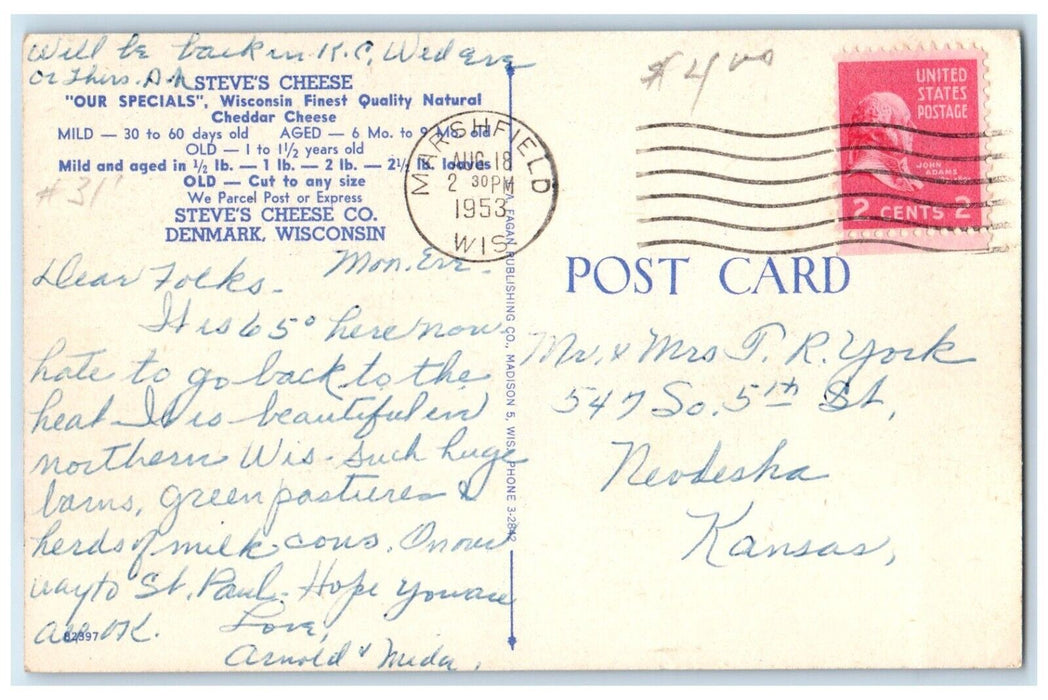 Will be back in K.C. Wed Eve
or Thurs. A.M.
STEVE'S CHEESE
"OUR SPECIALS", Wisconsin Finest Quality Natural
Cheddar Cheese
MILD — 30 to 60 days old AGED — 6 Mo. to 9 Mo. old
OLD — 1 to 1½ years old
Mild and aged in ½ lb. — 1 lb. — 2 lb. — 2½ lb. loaves
OLD — Cut to any size
We Parcel Post or Express
STEVE'S CHEESE CO.
DENMARK, WISCONSIN
#31
Mon. Eve.
Dear Folks.
It is 65° here now
hate to go back to the
heat. It is beautiful in
northern Wis. Such huge
barns, green pastures &
herds of milk cows. On our
way to St. Paul. Hope you are
all OK.
Love,
Arnold & Meda.
82397
FAGAN PUBLISHING CO., MADISON 5, WIS. PHONE 3-2842
MARSHFIELD
AUG 18
2 30 PM
1953
WIS
$4.00
UNITED
STATES
POSTAGE
JOHN
ADAMS
2 CENTS 2
POST CARD
Mr. & Mrs T. R. York
547 So. 5th St,
Neodesha
Kansas,